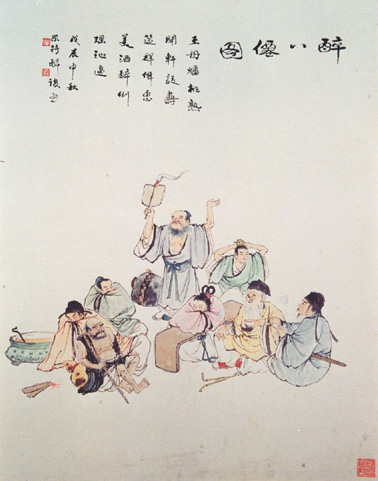 醉八僊圖
王母蟠桃熟
開軒設壽
筵群僊
美酒醉倒
瑤池邊
戊辰中秋
醉後